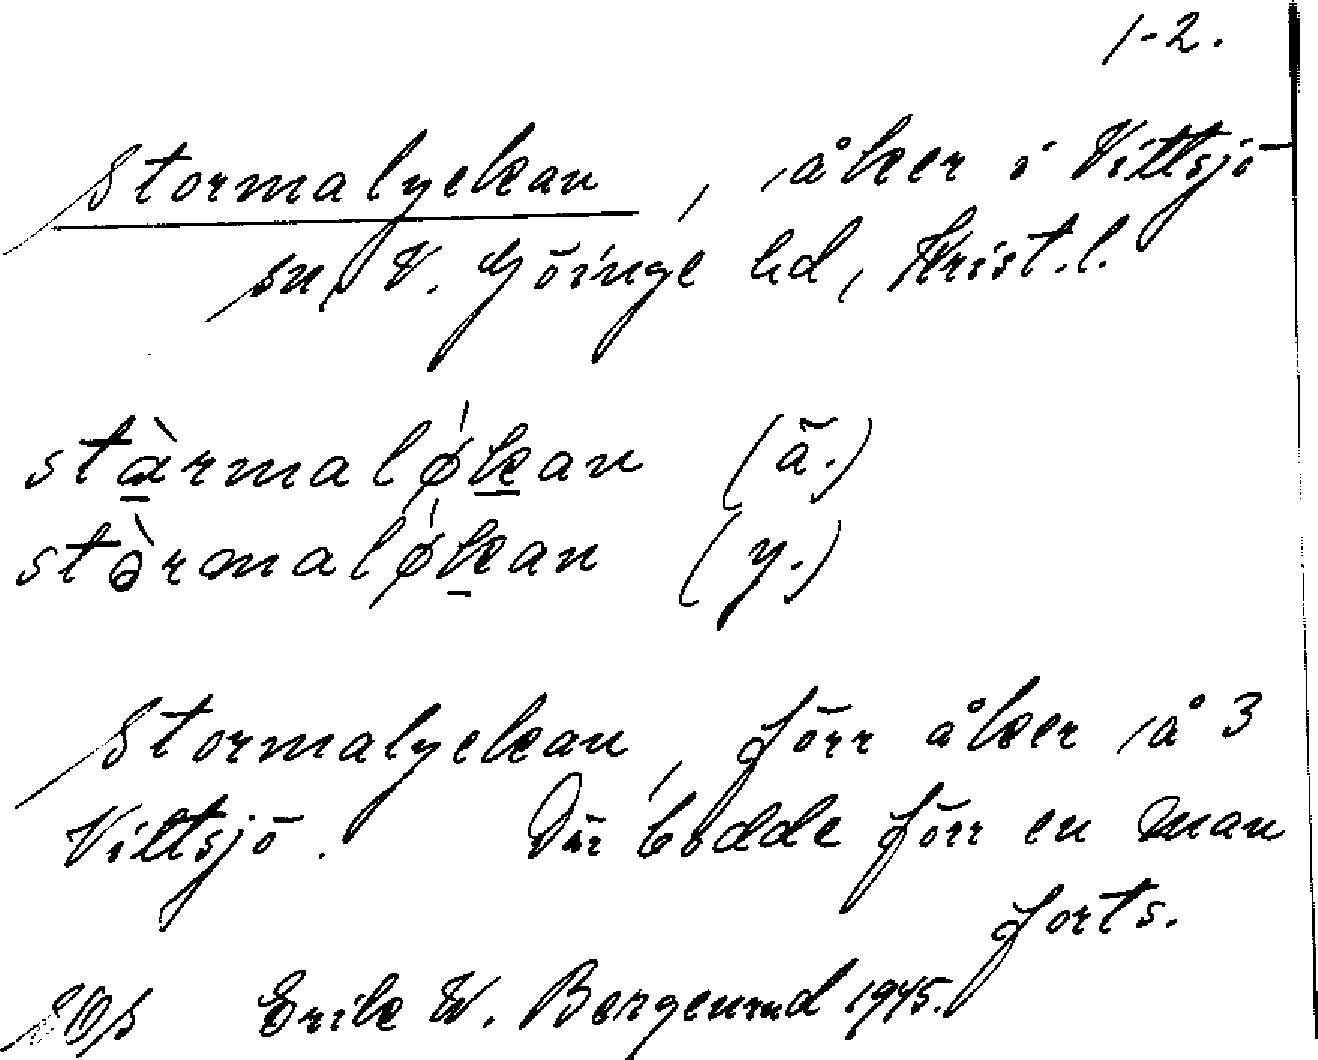 1-2.
Stormalyckan, åker i Vittsjö
sn, V. Göinge hd, Krist. l.
stàrmalǿkan (ä.)
stɔ̀rmalǿkan (y.)
Stormalyckan, förr åker å 3
Vittsjö. Där bodde förr en man
forts.
SOS Erik W. Bergenrud 1945.